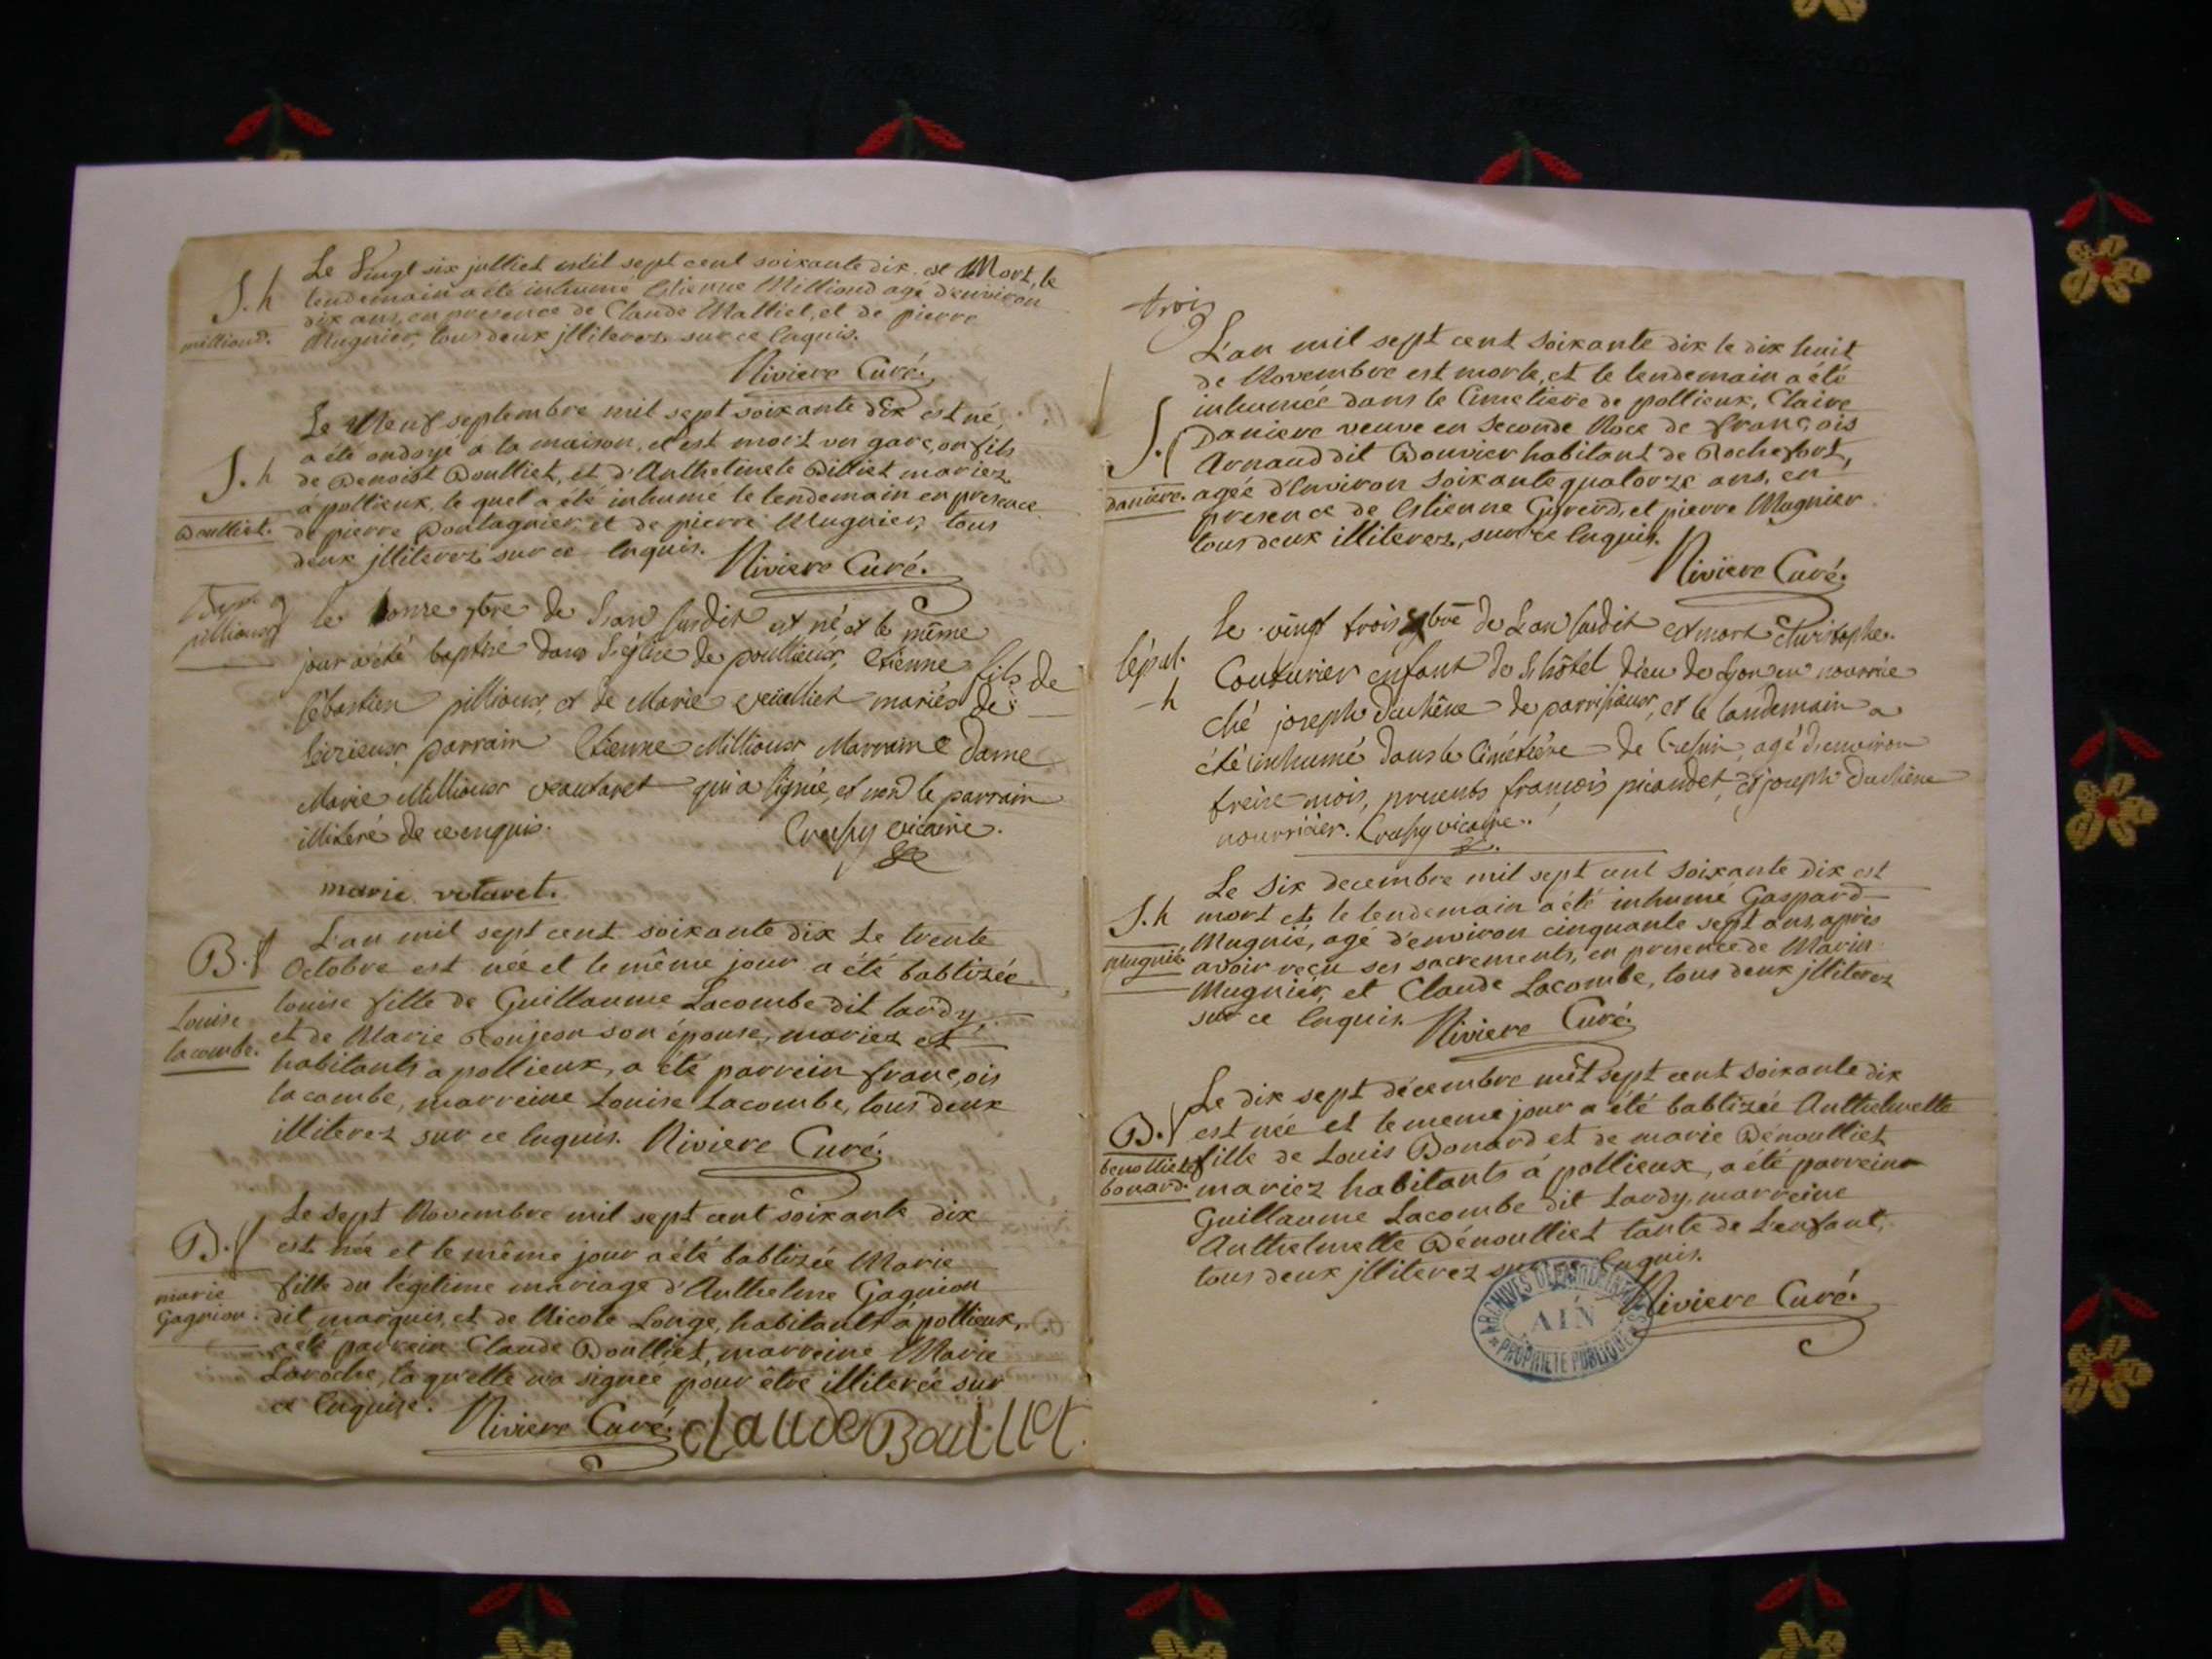 S. h
milliand.
Le Vingt six julliet mil sept cent soixante dix est Mort, le
lendemain a été inhumé Estienne Milliand agé d'environ
dix ans, en presence de Claude Malliet, et de pierre
Mugnier, tous deux jlliterez sur ce Enquis.
Riviere Curé.
S. h
Boulliet.
Le Neuf septembre mil sept soixante dix est né,
a été ondoyé a la maison, et est mort un garçon fils
de Benoist Boulliet, et d'Anthelmete Billiet mariez
à pollieux, le quel a été inhumé le lendemain en presence
de pierre Pontagnier, et de pierre Mugnier, tous
deux jlliterez sur ce Enquis.
Riviere Curé.
Bap.
pillioux
le onze 7bre de L'an susdit est né et le même
jour a été baptisé dans L'église de poullieux, Etienne fils de
sébastien pillioux, et de Marie veulliet mariés de
Ecrieux, parrain Etienne Millioux Marraine Dame
Marie Millioux veautaret qui a signée, et non le parrain
illiteré de ce enquis.
Crassy vicaire.
marie votaret.
B. f
Louise
lacombe.
L'an mil sept cent soixante dix Le trente
Octobre est née et le même jour a été babtizée
Louise fille de Guillaume Lacombe dit lardy,
et de Marie Roujeon son épouse, mariez et
habitants a pollieux, a été parrein françois
lacombe, marreine Louise Lacombe, tous deux
illiterez sur ce Enquis. Riviere Curé.
B. f
marie
Gagnion.
Le sept Novembre mil sept cent soixante dix
est née et le même jour a été babtizée Marie
fille du légitime mariage d'Anthelme Gagnion
dit marquis, et de Nicole Longe, habitants à pollieux,
a été parrein Claude Boulliet, marreine Marie
Laroche, la quelle n'a signée pour être illiterée sur
ce Enquise.
Riviere Curé. claude Boulliet.
trois
S. f
daniere.
L'an mil sept cent soixante dix le dix huit
de Novembre est morte, et le lendemain a été
inhumée dans le Cimetiere de pollieux, Claire
Daniere veuve en seconde Noce de françois
Arnaud dit Bouvier habitant de Rochefort,
agée d'Environ soixante quatorze ans, en
presence de Estienne Gyrerd, et pierre Mugnier
tous deux illiterez, sur ce Enquis.
Riviere Curé.
sépul.
h
Le vingt trois 9bre de L'an susdit est mort Christophe
Couturier enfant de L'hôtel Dieu de Lyon en nourrie
ché joseph duchêne de parrissieux, et le landemain a
été inhumé dans le Cimétiére de Cressin, agé d'environ
treize mois, presents françois picaudet, et joseph duchêne
nourricier. Crassy vicaire.
S. h
Mugnié
Le six decembre mil sept cent soixante dix est
mort et le lendemain a été inhumé Gaspard
Mugnié, agé d'environ cinquante sept ans, après
avoir reçu ses sacrements, en presence de Marin
Mugnier, et Claude Lacombe, tous deux jlliterez
sur ce Enquis. Riviere Curé.
B. f
benolliete
bonard.
Le dix sept décembre mil sept cent soixante dix
est née et le meme jour a été babtizée Anthelmette
fille de Louis Bonard et de marie Bénoulliet
mariez habitants á pollieux, a été parrein
Guillaume Lacombe dit Lardy, marreine
Anthelmette Bénoulliet tante de L'enfant,
tous deux jlliterez sur ce Enquis.
Riviere Curé.
ARCHIVES DÉPARTEMENTALES
AIN
PROPRIÉTÉ PUBLIQUE